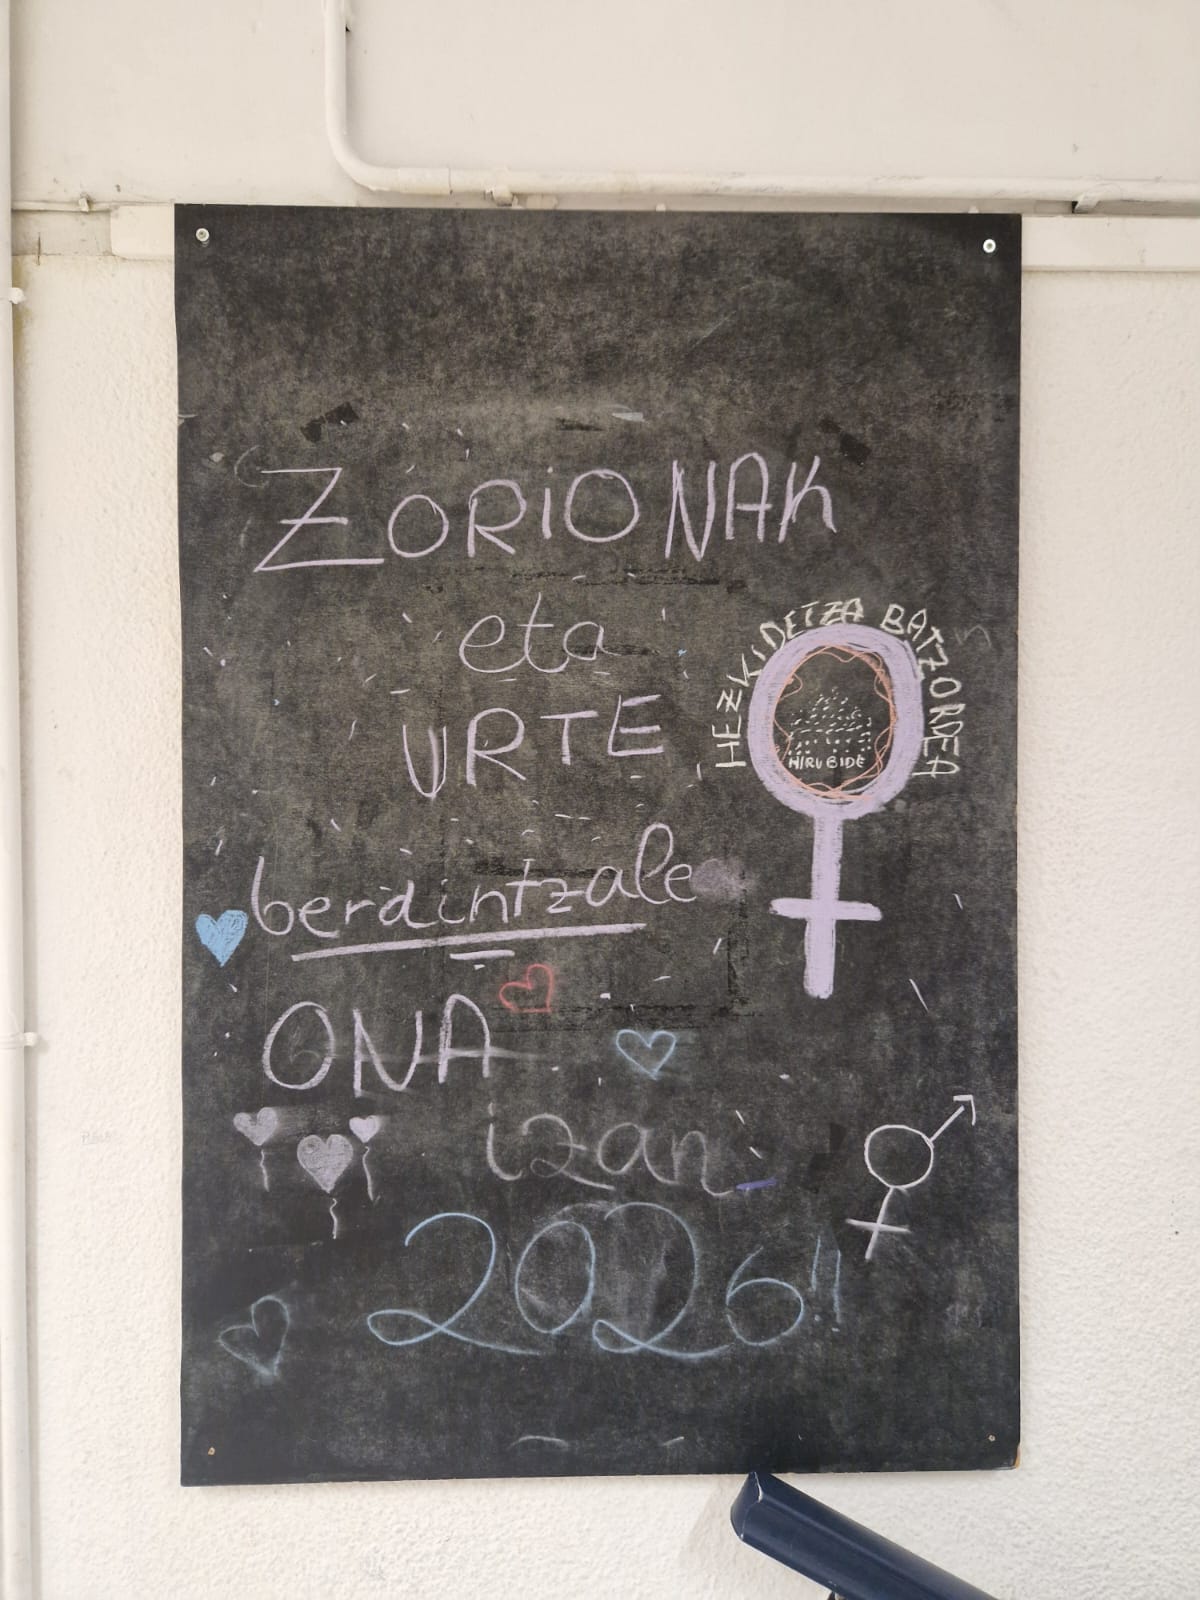 ZORIONAK
eta
URTE
berdintzale
ONA
izan
2026!!
HEZKIDETZA BATZORDEA
HIRUBIDE